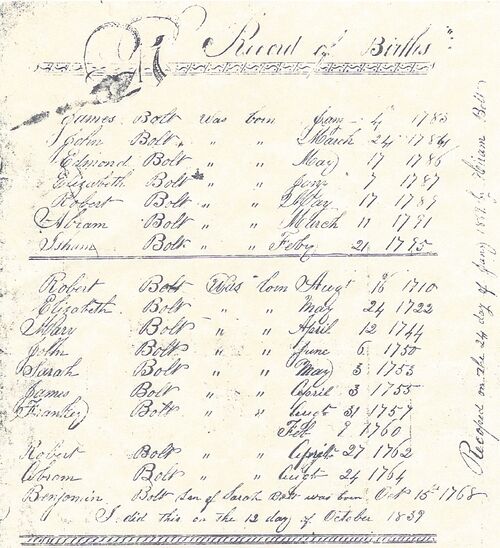 A Record of Births
James Bolt was born Jany 4th 1783
John Bolt " " March 24 1784
Edmond Bolt " " May 17 1786
Elizabeth Bolt " " Jany 7 1787
Robert Bolt " " May 17 1789
Abram Bolt " " March 11 1791
Isham Bolt " " Feby 21 1795
Robert Bolt Was born Augt 16th 1710
Elizabeth Bolt " " May 24 1722
Mary Bolt " " April 12 1744
John Bolt " " June 6 1750
Sarah Bolt " " May 3 1753
James Bolt " " April 3 1755
Frankey Bolt " " Augt 31 1757
Feb 9 1760
Robert Bolt " " April 27 1762
Abram Bolt " " Augt 24 1764
Benjamin Bolt Son of Sarah Bolt was born Oct 15th 1768
I did this on the 12 day of October 1839
on the 24 day of Jany by Hiram Bolt